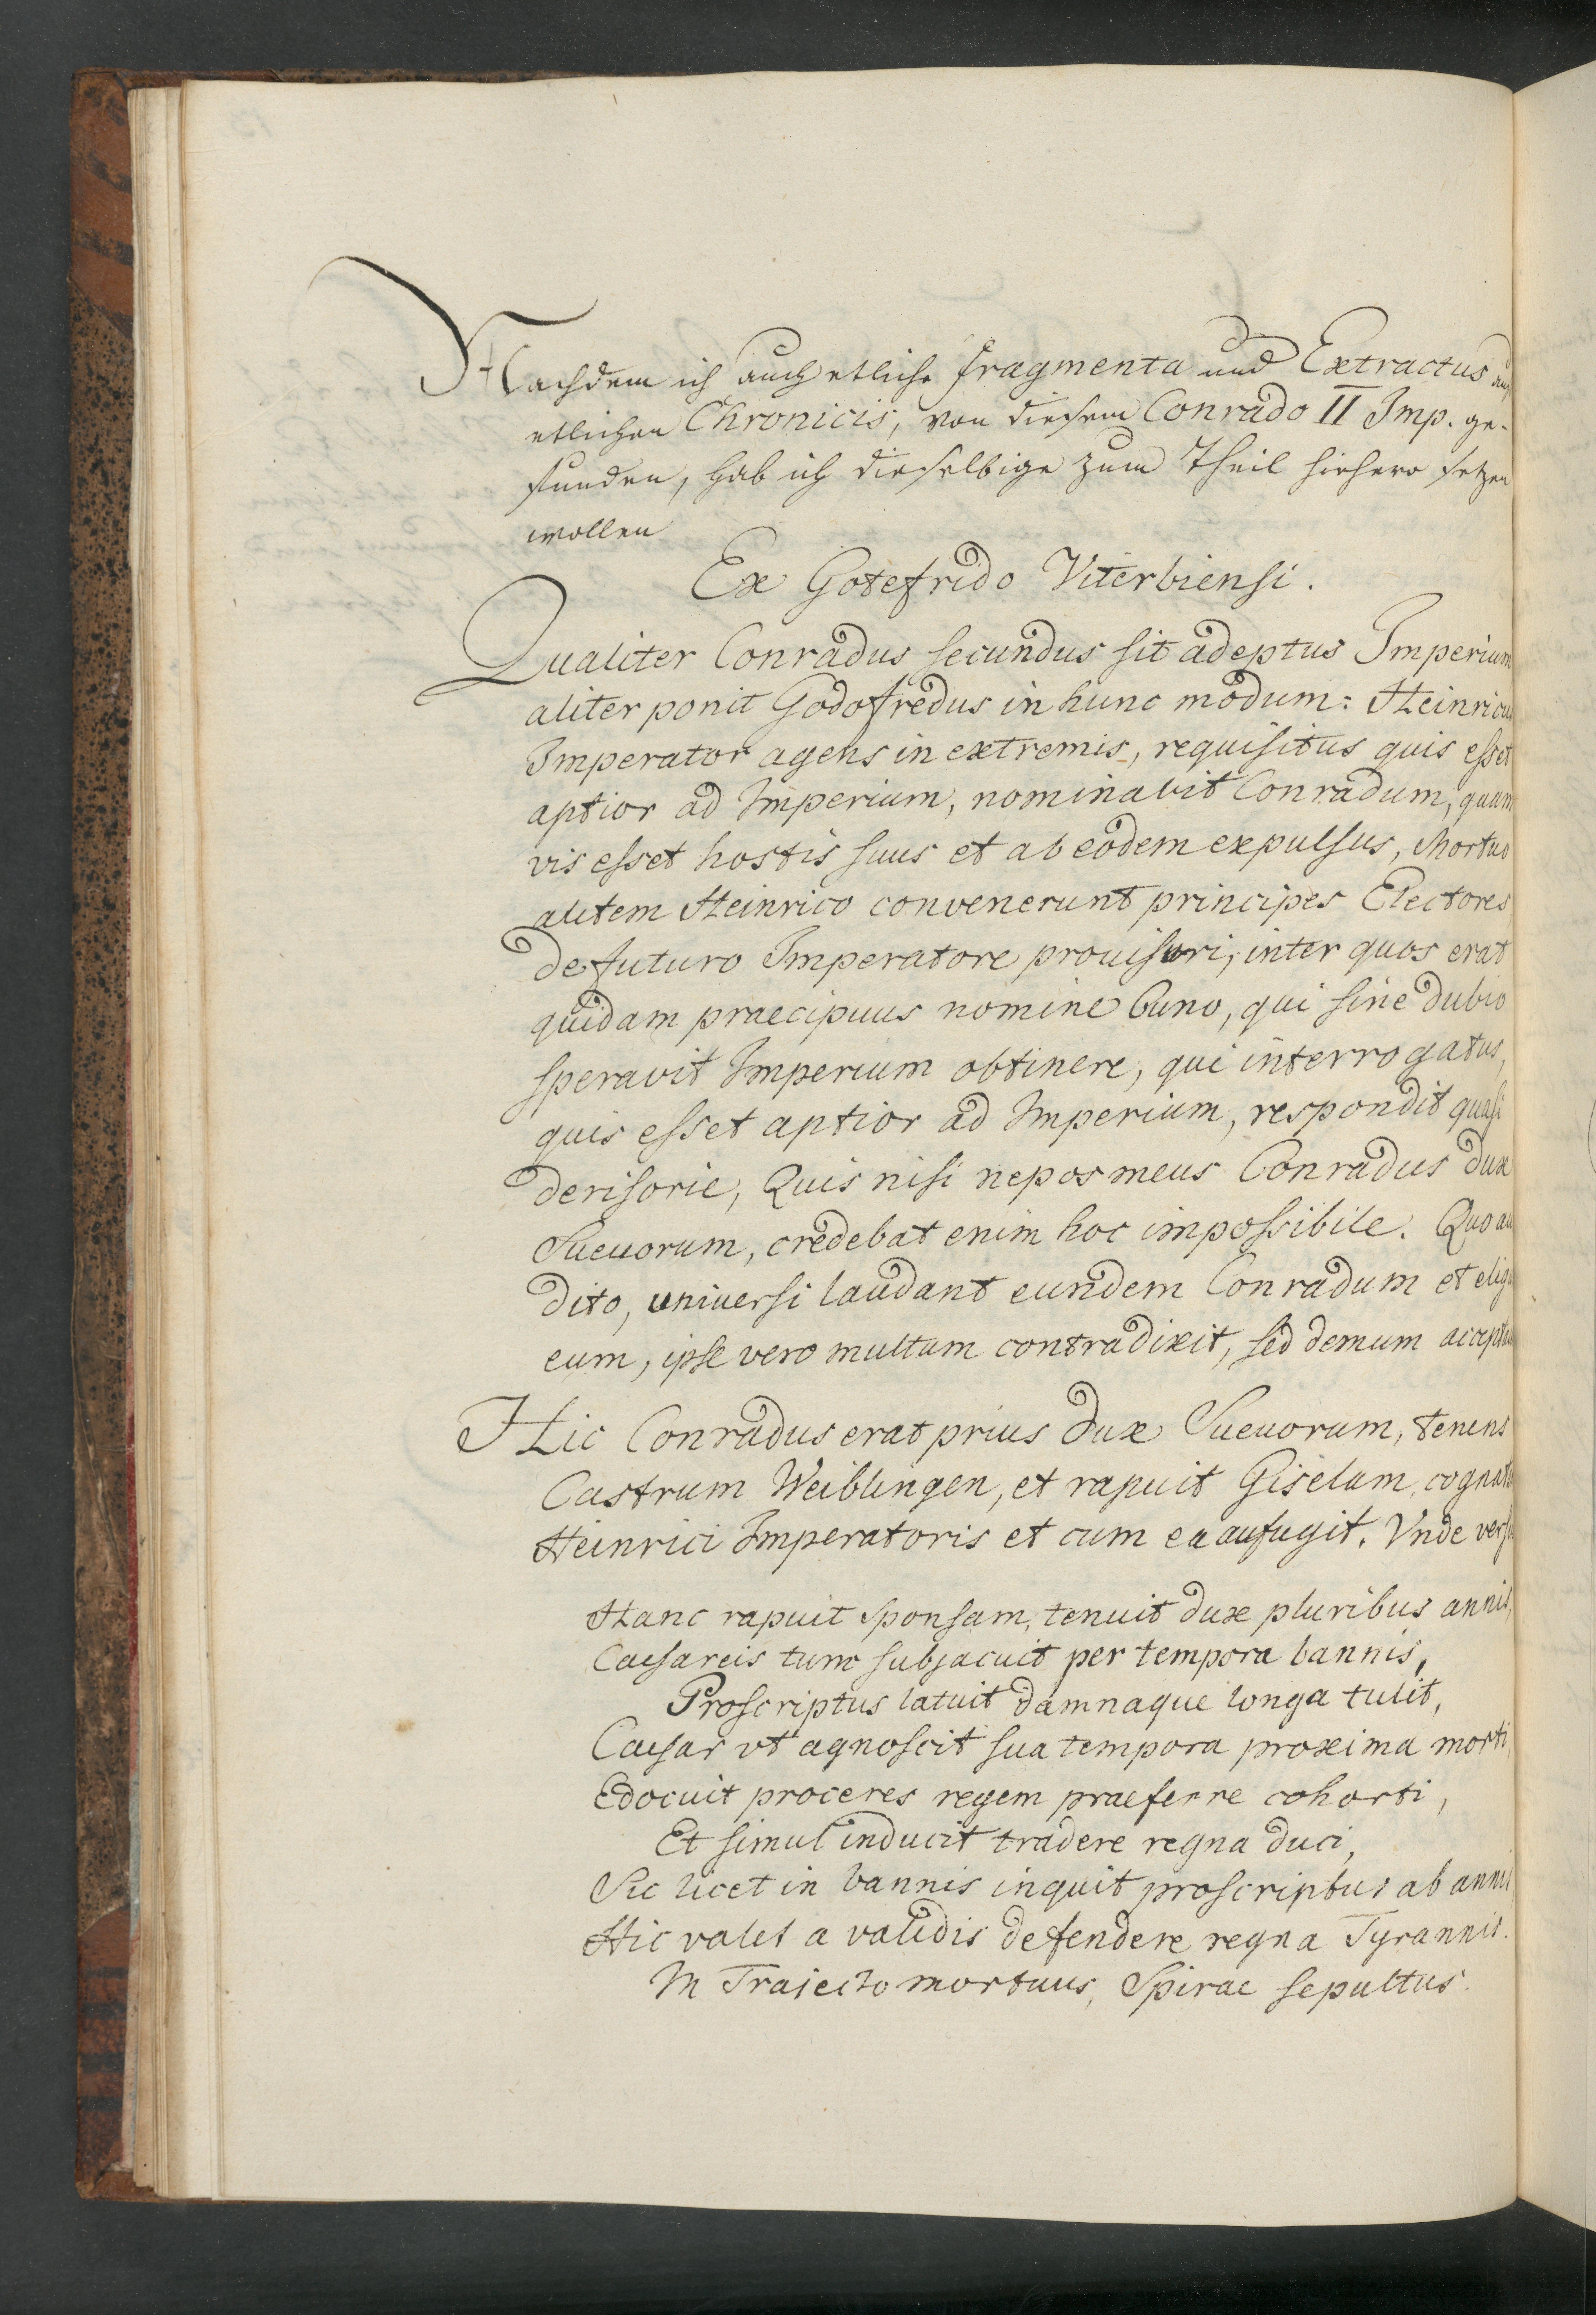 Nachdem ich auch etliche fragmenta und Extractus auß
etlichen Chronicis, von diesem Conrado II Imp. ge-
funden, hab ich dieselbige zum Theil hiehero setzen
wollen
Ex Gotefrido Viterbiensi.
Qualiter Conradus secundus sit adeptus Imperium
aliter ponit Godofredus in hunc modum: Heinricus
Imperator agens in extremis, requisitus quis esset
aptior ad Imperium, nominavit Conradum, quam
vis esset hostis suus et ab eodem expulsus, Mortuo
autem Heinrico convenerunt principes Electores
de futuro Imperatore prouisuri, inter quos erat
quidam praecipuus nomine Cuno, qui sine dubio
speravit Imperium obtinere, qui interrogatus,
quis esset aptior ad Imperium, respondit quasi
derisorie, Quis nisi nepos meus Conradus dux
Sueuorum, credebat enim hoc impossibile. Quo au
dito, universi laudant eundem Conradum et elig
eum, ipse vero multum contradixit, sed demum
Hic Conradus erat prius dux Sueuorum, tenens
Castrum Weiblingen, et rapuit Giselam, cognat
Heinrici Imperatoris et cum ea aufugit. Vnde vers
Hanc rapuit sponsam, tenuit dux pluribus annis,
Caesareis tum subjacuit per tempora bannis,
Proscriptus latuit damnaque longa tulit,
Caesar vt agnoscit sua tempora proxima morti,
Edocuit proceres regem praeferre cohorti,
Et simul inducit tradere regna duci,
Sic licet in bannis inquit proscriptus ab annis
Hic valet a validis defendere regna Tyrannis.
In Traiecto mortuus, Spirae sepultus.